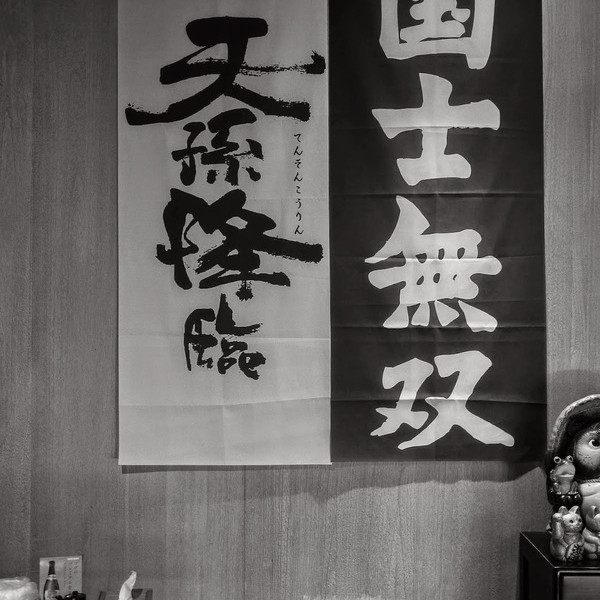 国士無双
天孫降臨
てんそんこうりん